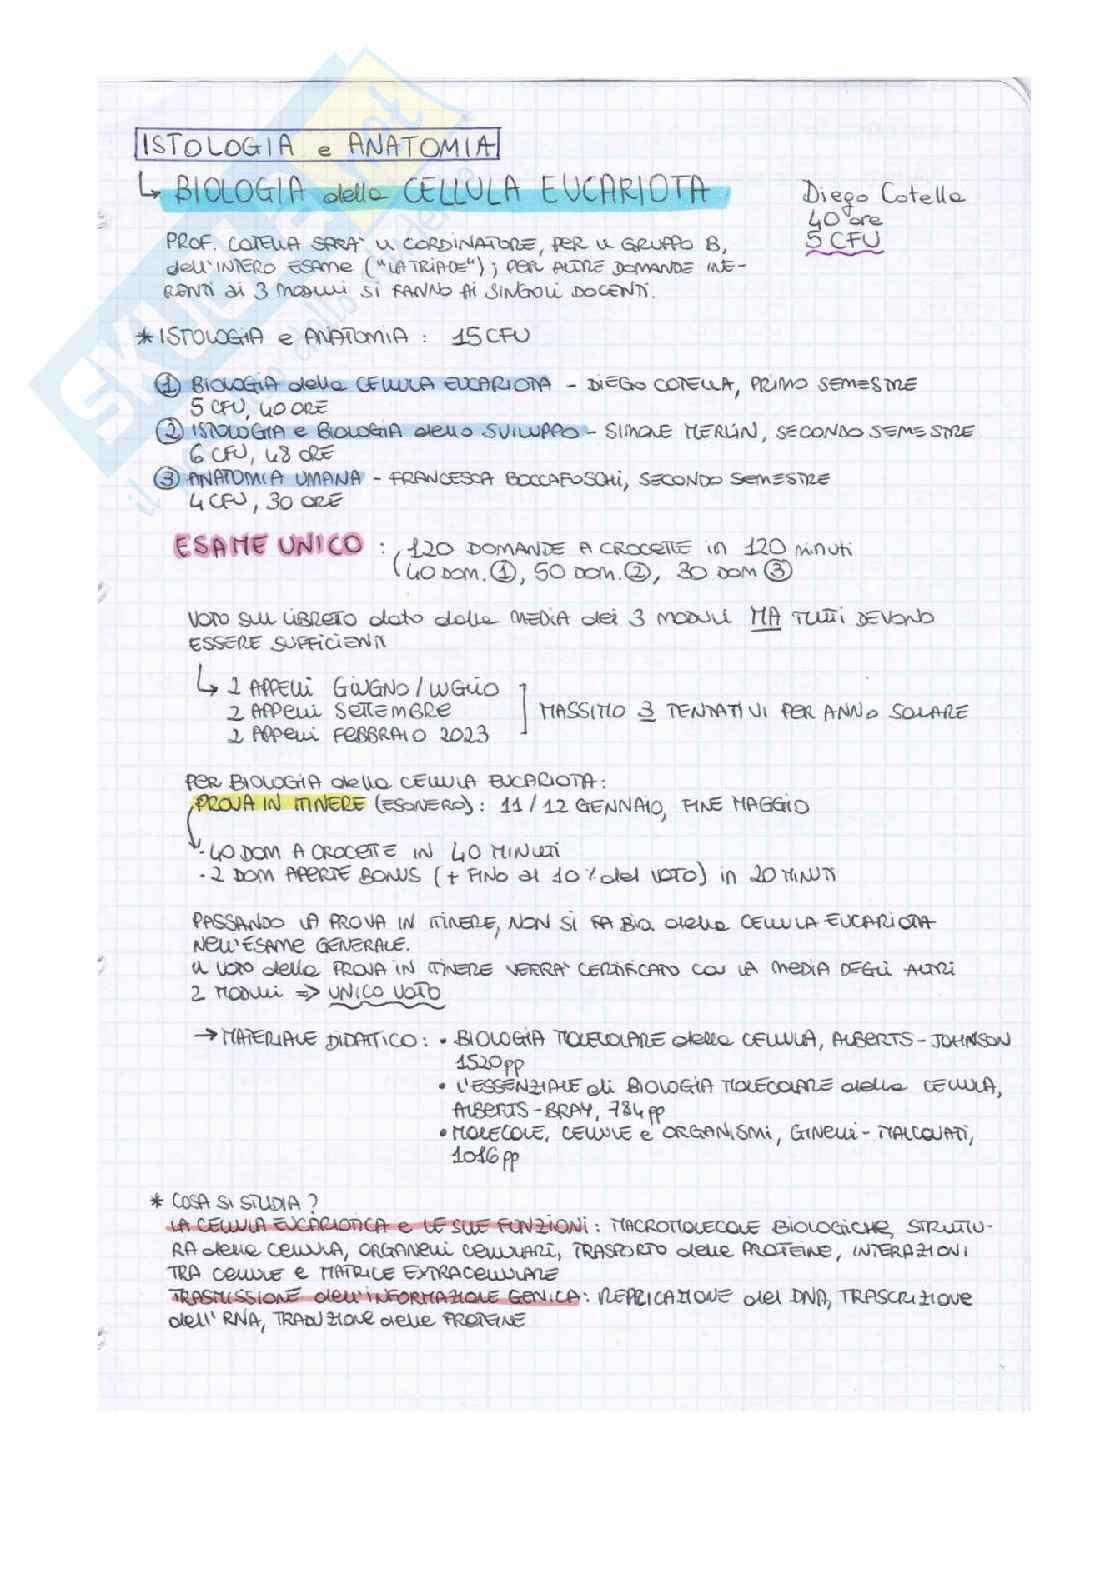 ISTOLOGIA e ANATOMIA
↳ BIOLOGIA della CELLULA EUCARIOTA
Diego Cotella
40 ore
5 CFU
PROF. COTELLA SARA' IL CORDINATORE, PER IL GRUPPO B,
dell'INTERO ESAME ("LA TRIADE"); PER ALTRE DOMANDE INE-
RENTI ai 3 MODULI SI FANNO AI SINGOLI DOCENTI.
* ISTOLOGIA e ANATOMIA : 15 CFU
① BIOLOGIA della CELLULA EUCARIOTA - DIEGO COTELLA, PRIMO SEMESTRE
5 CFU, 40 ORE
② ISTOLOGIA e BIOLOGIA dello SVILUPPO - SIMONE MERLIN, SECONDO SEMESTRE
6 CFU, 48 ORE
③ ANATOMIA UMANA - FRANCESCA BOCCAFOSCHI, SECONDO SEMESTRE
4 CFU, 30 ORE
ESAME UNICO : 120 DOMANDE A CROCETTE in 120 minuti
40 DOM. ①, 50 DOM. ②, 30 DOM ③
VOTO SUL LIBRETO dato dalla MEDIA dei 3 MODULI MA TUTTI DEVONO
ESSERE SUFFICIENTI
↳ 2 APPELLI GIUGNO / LUGLIO
2 APPELLI SETTEMBRE
2 APPELLI FEBBRAIO 2023
MASSIMO 3 TENTATIVI PER ANNO SOLARE
PER BIOLOGIA della CELLULA EUCARIOTA:
PROVA IN ITINERE (ESONERO) : 11 / 12 GENNAIO, FINE MAGGIO
· 40 DOM A CROCETTE IN 40 MINUTI
· 2 DOM APERTE BONUS (+ FINO al 10% del VOTO) in 20 MINUTI
PASSANDO LA PROVA IN ITINERE, NON SI FA Bio. della CELLULA EUCARIOTA
NELL'ESAME GENERALE.
IL VOTO della PROVA IN ITINERE VERRA' CERTIFICATO CON LA MEDIA DEGLI ALTRI
2 MODULI => UNICO VOTO
→ MATERIALE DIDATTICO : • BIOLOGIA MOLECOLARE della CELLULA, ALBERTS - JOHNSON
1520 pp
• L'ESSENZIALE di BIOLOGIA MOLECOLARE della CELLULA,
ALBERTS - BRAY, 784 pp
• MOLECOLE, CELLULE e ORGANISMI, GINELLI - MALCOVATI,
1016 pp
* COSA SI STUDIA ?
LA CELLULA EUCARIOTICA e LE SUE FUNZIONI : MACROMOLECOLE BIOLOGICHE, STRUTTU-
RA della CELLULA, ORGANELLI CELLULARI, TRASPORTO delle PROTEINE, INTERAZIONI
TRA CELLULE E MATRICE EXTRACELLULARE
TRASMISSIONE dell'INFORMAZIONE GENICA : REPLICAZIONE del DNA, TRASCRIZIONE
dell' RNA, TRADUZIONE delle PROTEINE